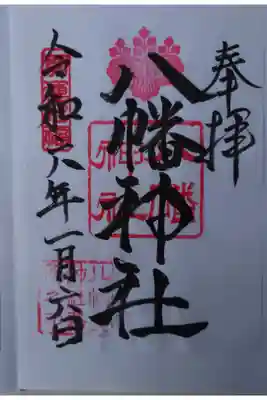 奉拝
八幡神社
令和六年一月六日